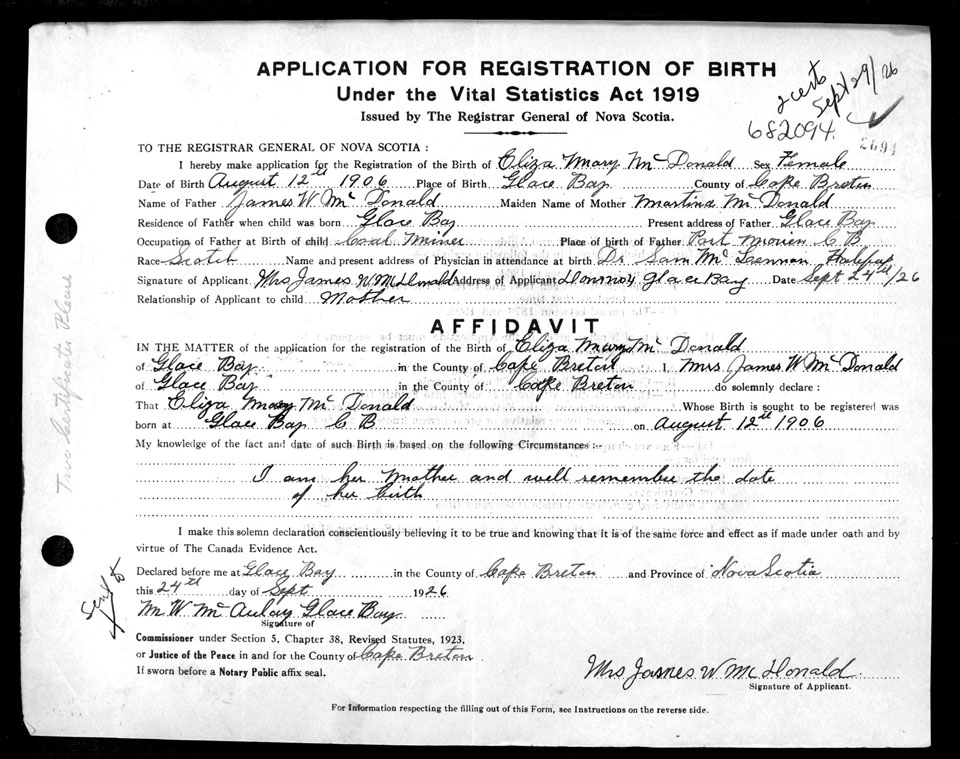 APPLICATION FOR REGISTRATION OF BIRTH
Under the Vital Statistics Act 1919
Issued by The Registrar General of Nova Scotia.
2 certs
Sept 29/26
682094
TO THE REGISTRAR GENERAL OF NOVA SCOTIA :
I hereby make application for the Registration of the Birth of Eliza Mary McDonald Sex Female
Date of Birth August 12th 1906 Place of Birth Glace Bay County of Cape Breton
Name of Father James W McDonald Maiden Name of Mother Martina McDonald
Residence of Father when child was born Glace Bay Present address of Father Glace Bay
Occupation of Father at Birth of child Coal Miner Place of birth of Father Port Morien C B
Race Scotch Name and present address of Physician in attendance at birth Dr Sam McLennan Halifax
Signature of Applicant Mrs James W McDonald Address of Applicant Glace Bay Date Sept 24th/26
Relationship of Applicant to child Mother
AFFIDAVIT
IN THE MATTER of the application for the registration of the Birth of Eliza Mary McDonald
of Glace Bay in the County of Cape Breton I, Mrs James W McDonald
of Glace Bay in the County of Cape Breton do solemnly declare :
That Eliza Mary McDonald Whose Birth is sought to be registered was
born at Glace Bay C B on August 12th 1906
My knowledge of the fact and date of such Birth is based on the following Circumstances :-
I am her mother and well remember the date
of her birth
I make this solemn declaration conscientiously believing it to be true and knowing that it is of the same force and effect as if made under oath and by
virtue of The Canada Evidence Act.
Declared before me at Glace Bay in the County of Cape Breton and Province of Nova Scotia
this 24th day of Sept 1926
M. W McAulay Glace Bay
Signature of
Commissioner under Section 5, Chapter 38, Revised Statutes, 1923,
or Justice of the Peace in and for the County of Cape Breton
If sworn before a Notary Public affix seal.
Mrs James W McDonald
Signature of Applicant.
For Information respecting the filling out of this Form, see Instructions on the reverse side.
Two Certificates Please